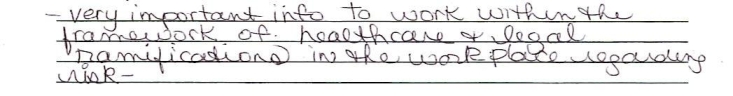 - very important info to work within the
framework of healthcare & legal
ramifications in the workplace regarding
risk -